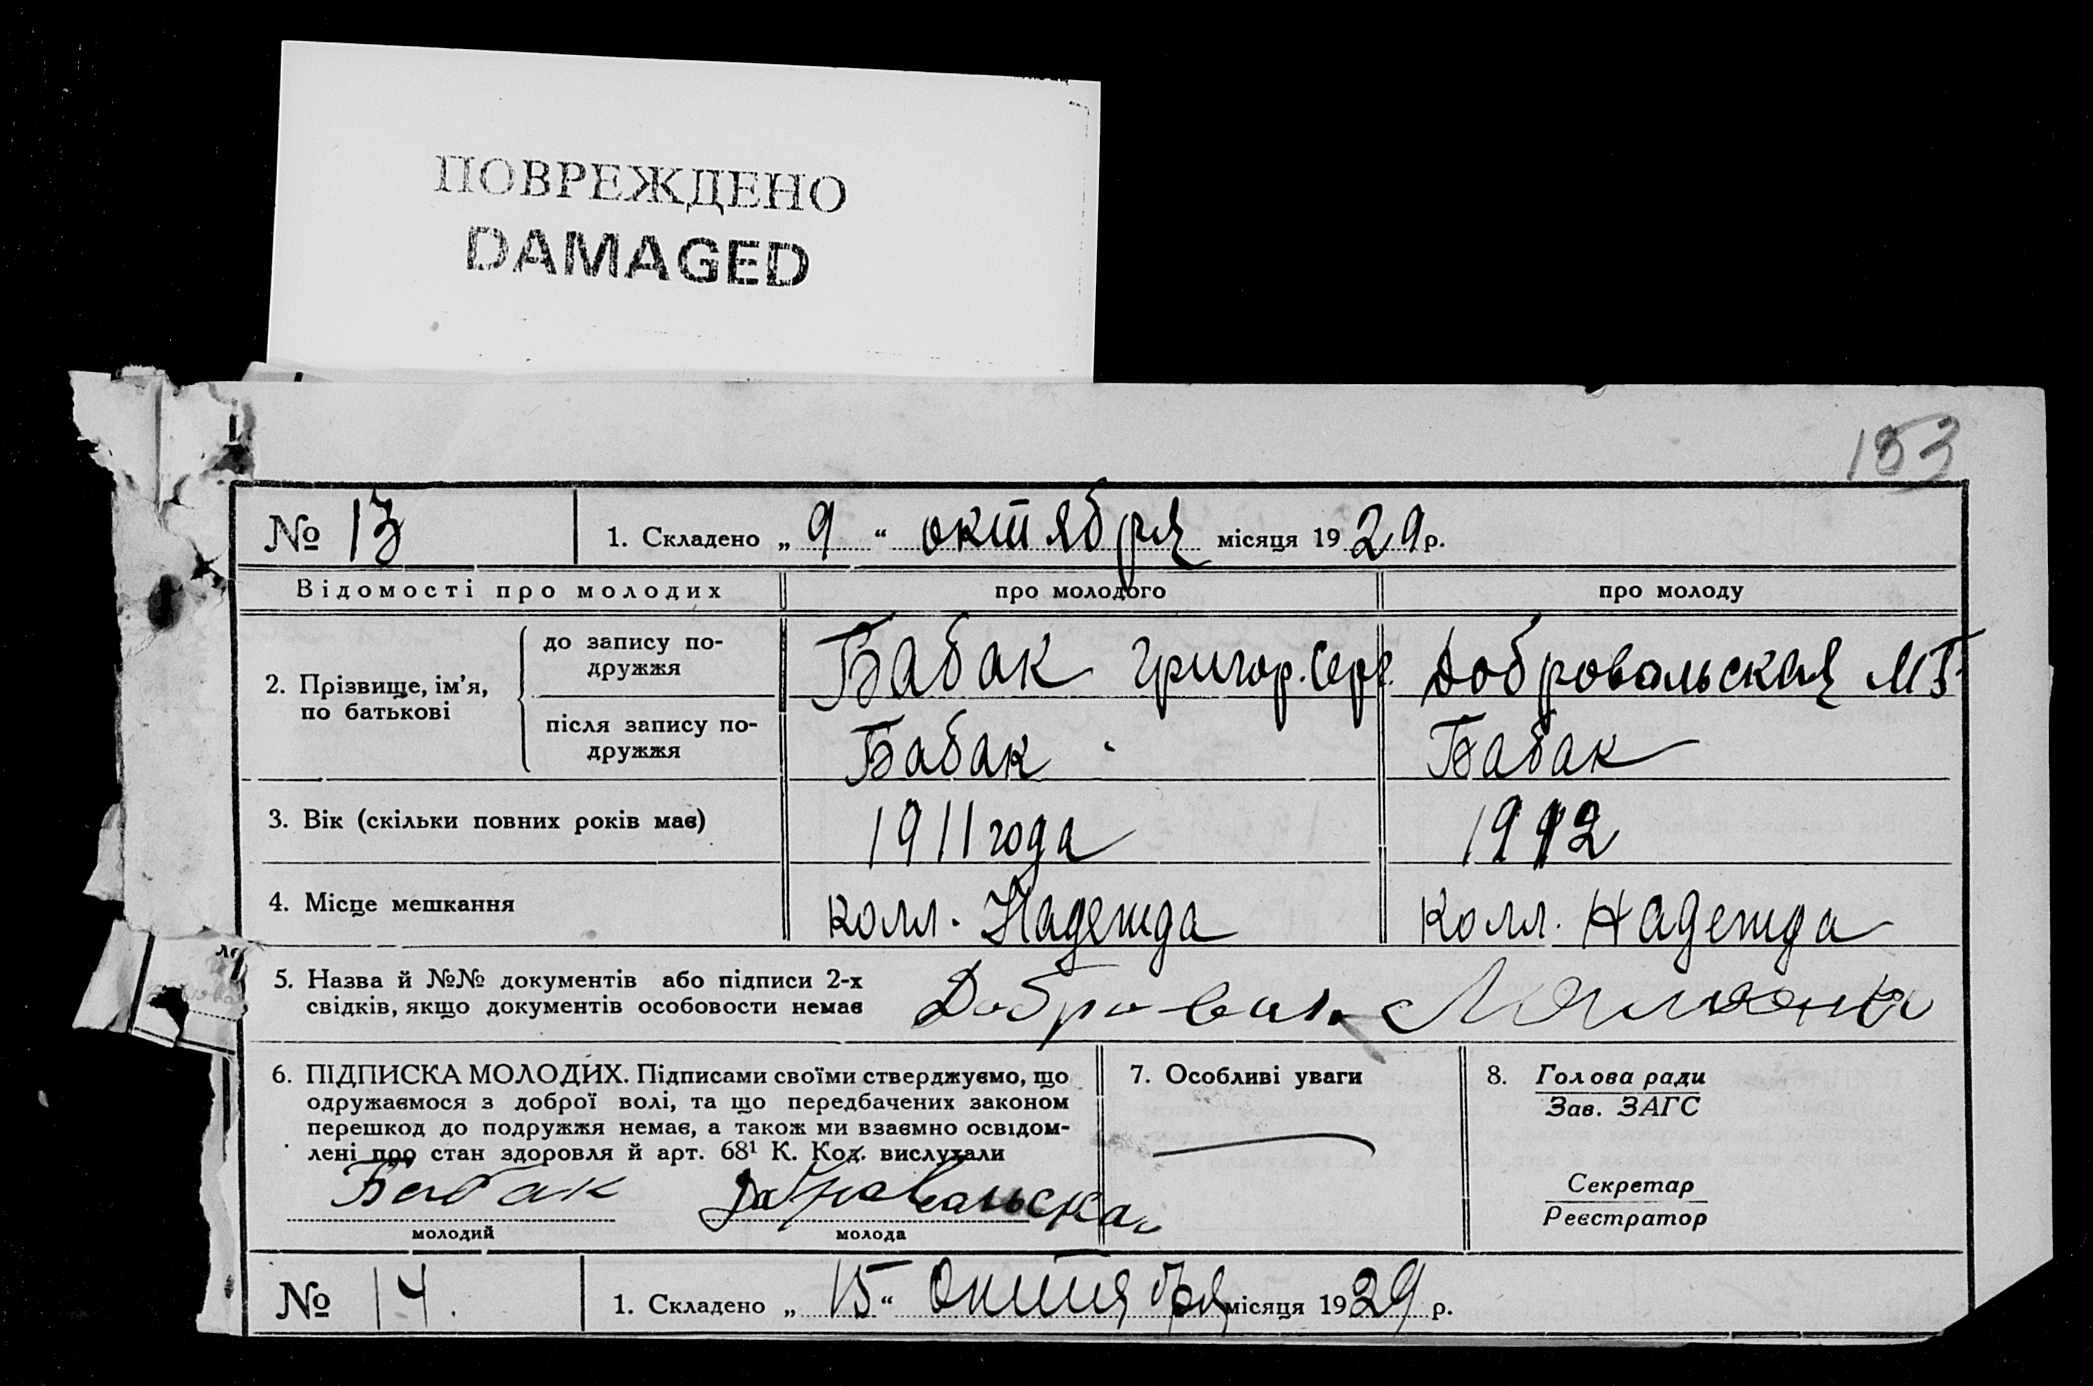 ПОВРЕЖДЕНО
DAMAGED
153
№ 13
1. Складено „ 9 “ октября місяця 1929 р.
Відомості про молодих
про молодого
про молоду
2. Прізвище, ім’я,
по батькові
до запису по-
дружжя
Бабак Григор. Серг.
Добровольская М Г
після запису по-
дружжя
Бабак
Бабак
3. Вік (скільки повних років має)
1911 года
1912
4. Місце мешкання
колл. Надежда
колл. Надежда
5. Назва й №№ документів або підписи 2-х
свідків, якщо документів особовости немає
6. ПІДПИСКА МОЛОДИХ. Підписами своїми стверджуємо, що
одружаємося з доброї волі, та що передбачених законом
перешкод до подружжя немає, а також ми взаємно освідом-
лені про стан здоровля й арт. 68¹ К. Код. вислухали
Бабак
Добровольская
молодий
молода
7. Особливі уваги
8. Голова ради
Зав. ЗАГС
Секретар
Реєстратор
№ 14.
1. Складено „ 15 “ Октября місяця 1929 р.